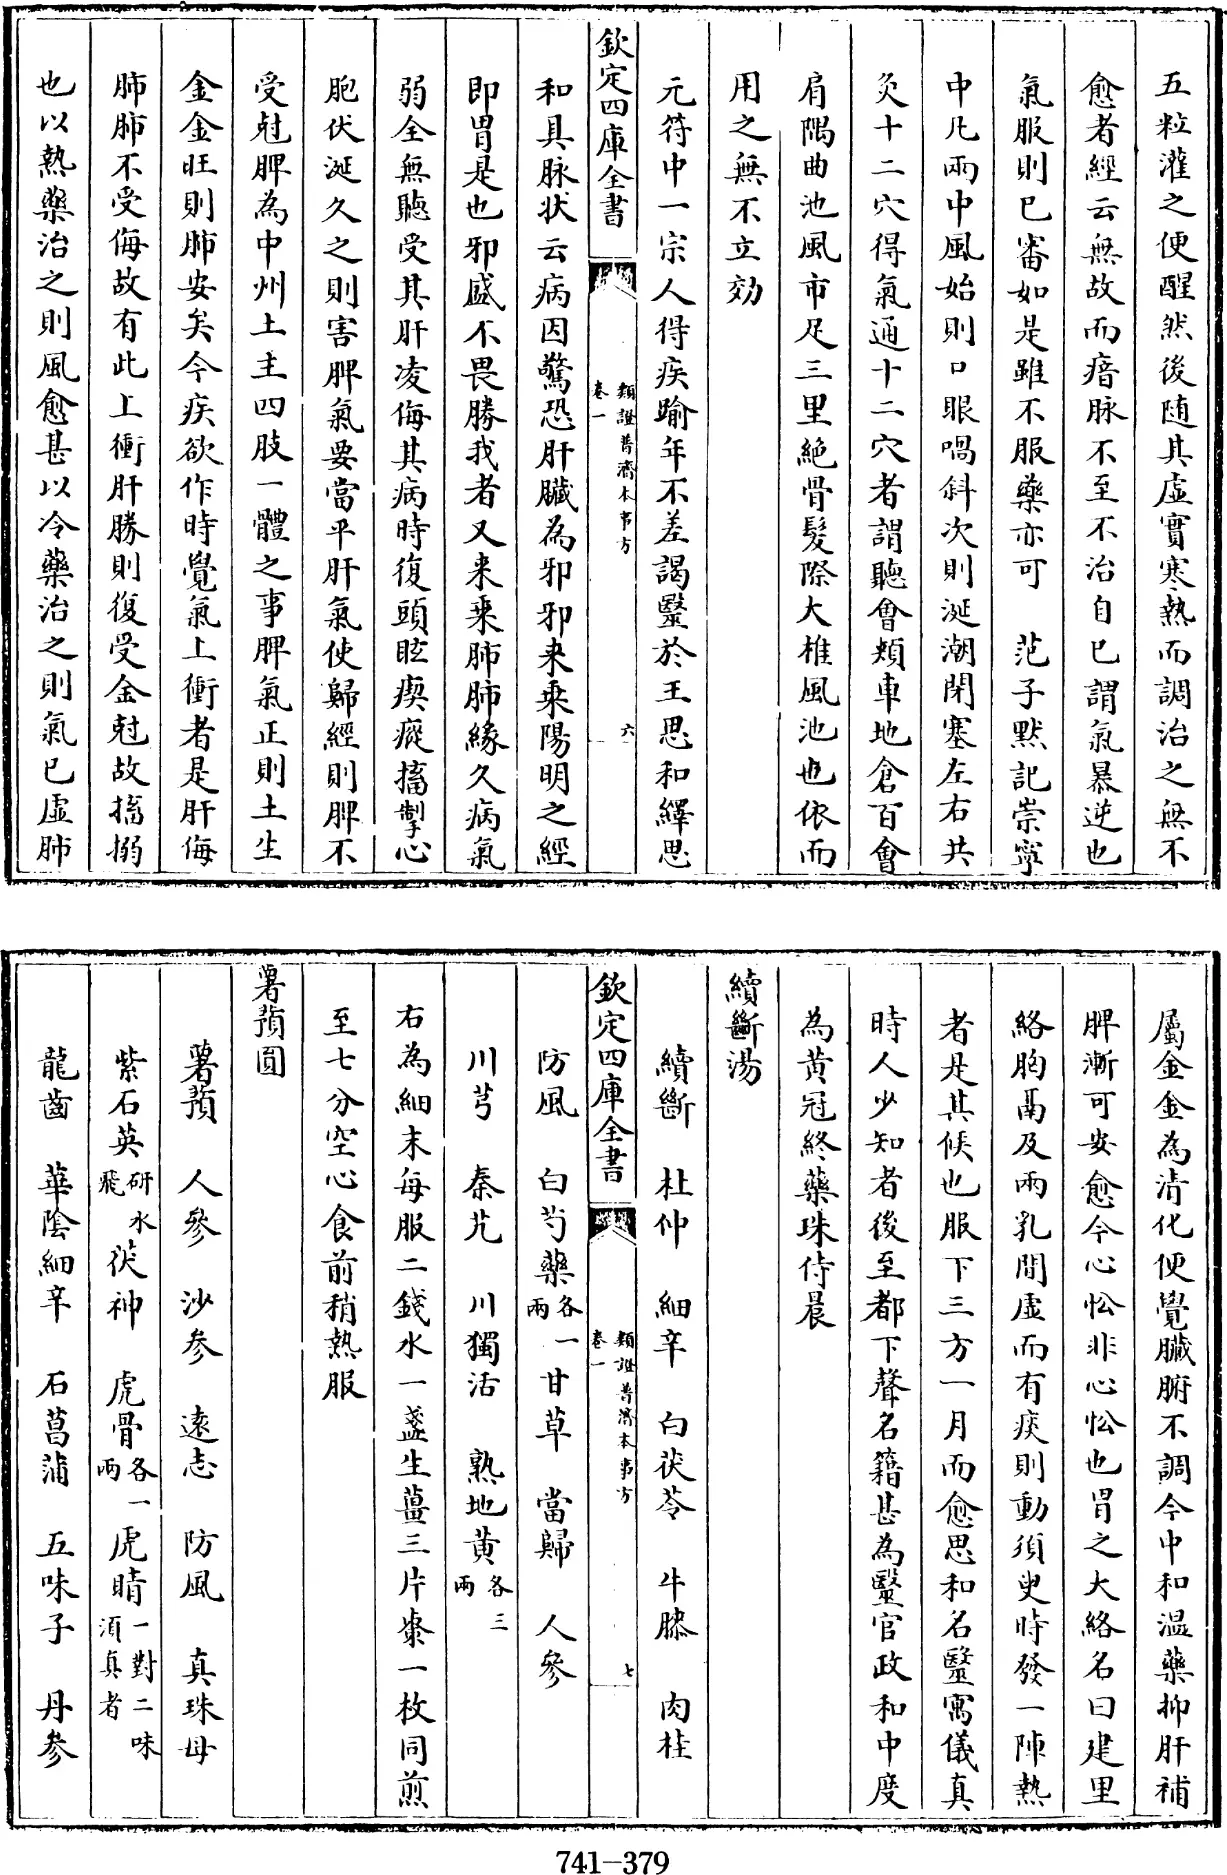 五粒灌之便醒然後随其虛實寒熱而調治之無不
愈者經云無故而瘖脉不至不治自已謂氣暴逆也
氣服則已審如是雖不服藥亦可　范子默記崇寧
中凡兩中風始則口眼喎斜次則涎潮閉塞左右共
灸十二穴得氣通十二穴者謂聽會頰車地倉百會
肩隅曲池風市足三里絶骨髮際大椎風池也依而
用之無不立効
元符中一宗人得疾踰年不差謁毉於王思和繹思
欽定四庫全書
類證普濟本事方
卷一
六
和具脉状云病因驚恐肝臟為邪邪来乘陽明之經
即胃是也邪盛不畏勝我者又来乘肺肺緣久病氣
弱全無聽受其肝凌侮其病時復頭眩瘈瘲搐掣心
胞伏涎久之則害脾氣要當平肝氣使歸經則脾不
受尅脾為中州土主四肢一體之事脾氣正則土生
金金旺則肺安矣今疾欲作時覺氣上衝者是肝侮
肺肺不受侮故有此上衝肝勝則復受金尅故搐搦
也以熱藥治之則風愈甚以冷藥治之則氣已虛肺
屬金金為清化便覺臟腑不調今中和温藥抑肝補
脾漸可安愈今心忪非心忪也胃之大絡名曰建里
絡胸鬲及兩乳間虛而有痰則動須臾時發一陣熱
者是其候也服下三方一月而愈思和名毉寓儀真
時人少知者後至都下聲名籍甚為毉官政和中度
為黄冠終藥珠侍晨
續斷湯
續斷　杜仲　細辛　白茯苓　牛膝　肉桂
欽定四庫全書
類證普濟本事方
卷一
七
防風　白芍藥各一兩　甘草　當歸　人參
川芎　秦艽　川獨活　熟地黄各三兩
右為細末每服二錢水一盞生薑三片棗一枚同煎
至七分空心食前稍熱服
薯蕷圓
薯蕷　人參　沙參　遠志　防風　真珠母
紫石英研水飛　茯神　虎骨各一兩　虎睛一對二味須真者
龍齒　華陰細辛　石菖蒲　五味子　丹參
741-379